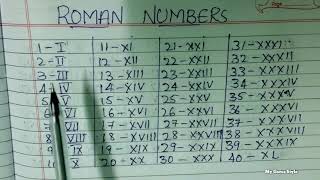 ROMAN NUMBERS
1-I 11-XI 21-XXI 31-XXXI
2-II 12-XII 22-XXII 32-XXXII
3-III 13-XIII 23-XXIII 33-XXXIII
4-IV 14-XIV 24-XXIV 34-XXXIV
5-V 15-XV 25-XXV 35-XXXV
6-VI 16-XVI 26-XXVI 36-XXXVI
VII 17-XVII 27-XXVII 37-XXXVII
8-VIII 18-XVIII 28-XXVIII 38-XXXVIII
9-IX 19-XIX 29-XXIX 39-XXXIX
X 20-XX 30-XXX 40-XL